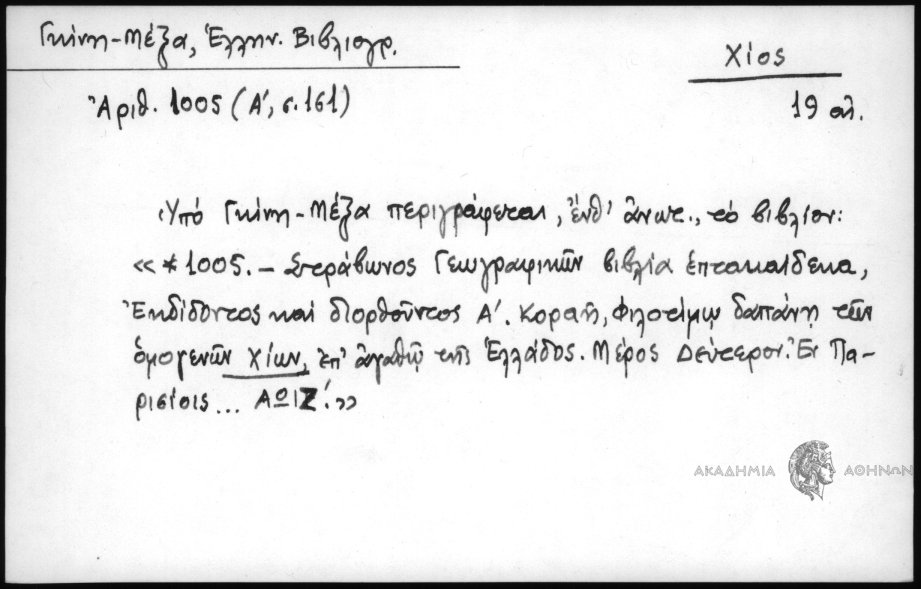 Γκίνη-Μέξα, Ἑλλην. Βιβλιογρ.
Χίος
Ἀριθ. 1005 (Α', σ. 161)
19 αἰ.
Ὑπό Γκίνη-Μέξα περιγράφεται, ἔνθ' ἄνωτ., τό βιβλίον:
«*1005. – Στράβωνος Γεωγραφικῶν βιβλία ἑπτακαίδεκα,
Ἐκδίδοντος καί διορθοῦντος Α'. Κοραῆ, φιλοτίμῳ δαπάνῃ τῶν
ὁμογενῶν Χίων, ἐπ' ἀγαθῷ τῆς Ἑλλάδος. Μέρος Δεύτερον. Ἐν Πα-
ρισίοις... ΑΩΙΖ'.»
ΑΚΑΔΗΜΙΑ ΑΘΗΝΩΝ